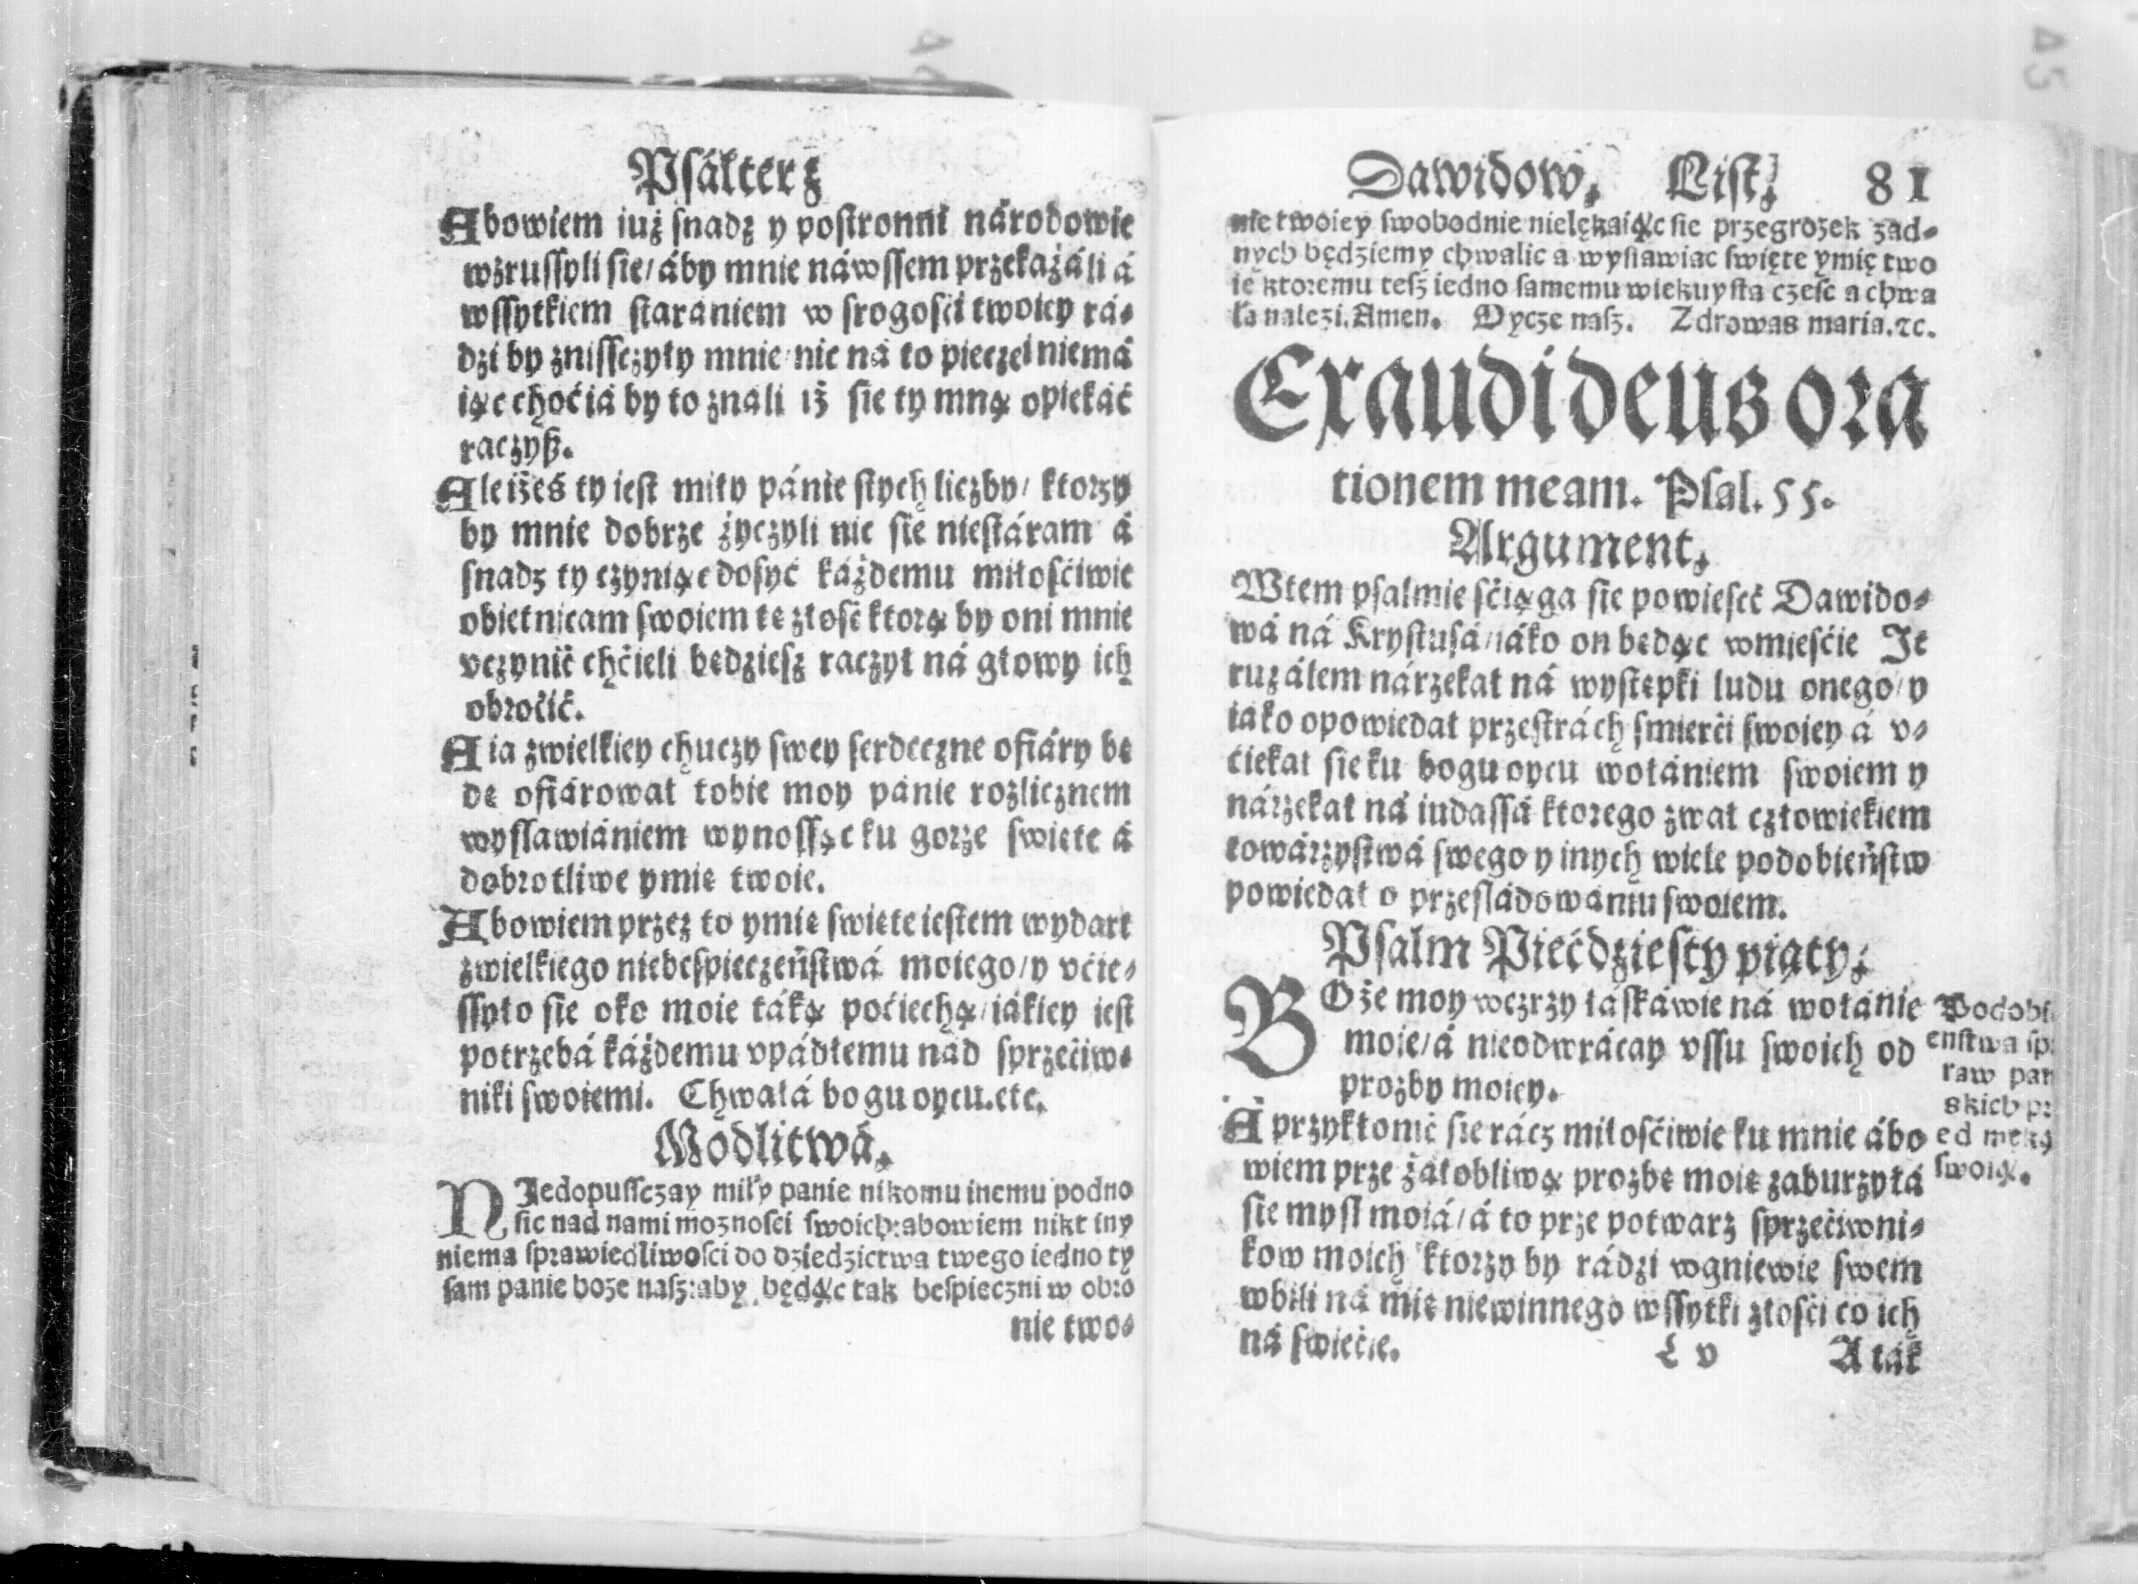 Psálterz
Abowiem iuż snadz y postronni národowie
wzrussyli sie/ áby mnie náwssem przekażáli á
wssytkiem stárániem w srogości twoiey rá⸗
dzi by znissczyły mnie/ nic ná to pieczei niemá
iąc choćia by to znali iż sie ty mną opiekáć
raczyß.
Ale iżeś ty iest miły pánie stych liczby/ ktorzy
by mnie dobrze życzyli nic sie niestáram á
snadz ty czyniąc dosyć káżdemu miłosćiwie
obietnicam swoiem tę złosć ktorą by oni mnie
vczynić chćieli będziesz raczył ná głowy ich
obroćić.
A ia zwielkiey chuczy swey serdeczne ofiáry bę
dę ofiárował tobie moy pánie rozlicznem
wysławiániem wynossąc ku gorze swięte á
dobrotliwe ymię twoie.
Abowiem przez to ymię swięte iestem wydart
zwielkiego niebespieczeństwá moiego/ y vćie⸗
ssyło sie oko moie táką poćiechą/ iákiey iest
potrzebá káżdemu vpádłemu nád sprzećiw⸗
niki swoiemi. Chwałá bogu oycu. etc.
Modlitwá.
NIedopussczay miły panie nikomu inemu podno
sic nad nami moznosci swoich: abowiem nikt iny
niema sprawiedliwosci do dziedzictwa twego iedno ty
sam panie boze nasz: aby będąc tak bespieczni w obro
nie two⸗
Dawidow. List. 81
nie twoiey swobodnie nielękaiąc sie przegrozek zad⸗
nych będziemy chwalic a wysławiac swięte ymię two
ie ktoremu tesz iedno samemu wiekuysta czesc a chwa
ła nalezi. Amen. Oycze nasz. Zdrowas maria. ⁊c.
Exaudi deus ora
tionem meam. Psal. 55.
Argument.
Wtem psalmie sćiąga sie powiesć Dawido⸗
wá ná Krystusá/ iáko on będąc wmiesćie Je
ruzálem nárzekał ná występki ludu onego/ y
iáko opowiedał przestrách smierći swoiey á v⸗
ćiekał sie ku bogu oycu wołániem swoiem y
nárzekał ná iudassá ktorego zwał człowiekiem
towárzystwá swego y inych wiele podobieństw
powiedał o przesládowániu swoiem.
Psalm Pięćdziesty piąty.
BOże moy wezrzy łáskáwie ná wołánie
moie/ á nieodwrácay vssu swoich od
prozby moiey.
A przykłonić sie rácz miłosćiwie ku mnie ábo
wiem prze żáłobliwą prozbę moię zaburzyłá
sie mysl moiá/ á to prze potwarz sprzećiwni⸗
kow moich ktorzy by rádzi wgniewie swem
wbili ná mię niewinnego wssytki złosći co ich
ná swiećie.
L v A ták
Podobi
enstwa sp
raw pan
skich pr
ed męką
swoią.